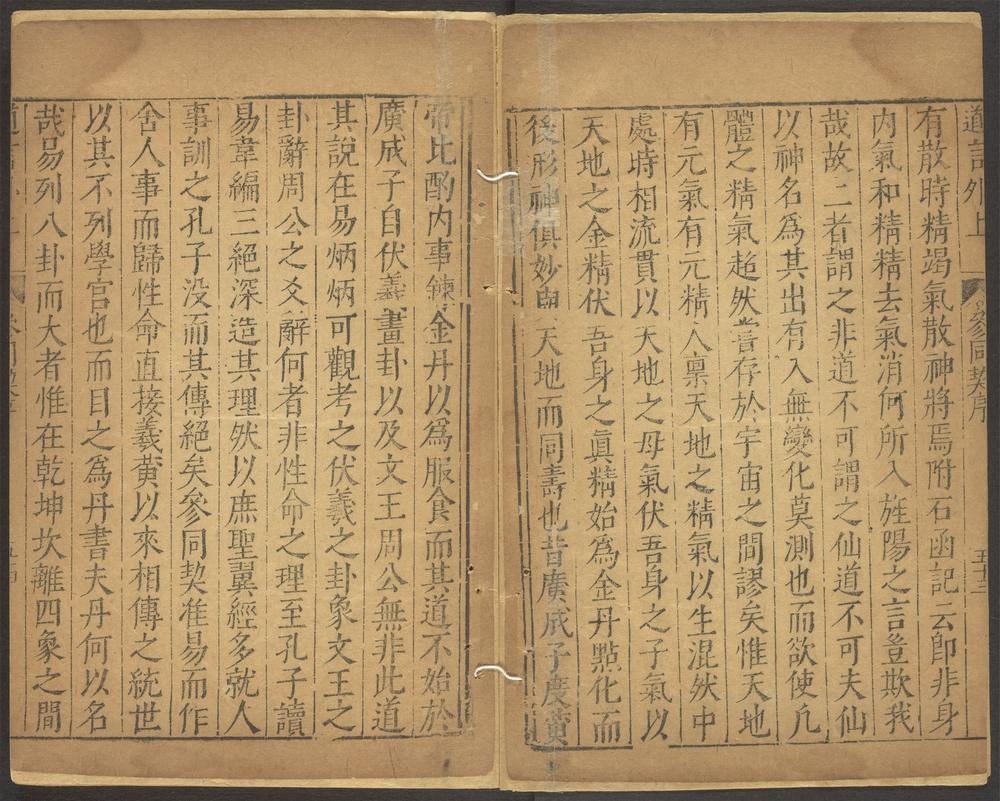 道言外 上 參同契序 五十三
有散時精竭氣散神將焉附石函記云卽非身
内氣和精精去氣消何所入旌陽之言豈欺我
哉故二者謂之非道不可謂之仙道不可夫仙
以神名爲其出有入無變化莫測也而欲使凡
體之精氣超然嘗存於宇宙之間謬矣惟天地
有元氣有元精人稟天地之精氣以生混然中
處時相流貫以天地之母氣伏吾身之子氣以
天地之金精伏吾身之眞精始爲金丹點化而
後形神俱妙與天地而同壽也昔廣成子度黃
帝比酌内事鍊金丹以爲服食而其道不始於
廣成子自伏羲畫卦以及文王周公無非此道
其說在易炳炳可觀考之伏羲之卦象文王之
卦辭周公之爻辭何者非性命之理至孔子讀
易韋編三絕深造其理然以庶聖翼經多就人
事訓之孔子没而其傳絕矣參同契准易而作
舍人事而歸性命直接羲黄以來相傳之統世
以其不列學官也而目之爲丹書夫丹何以名
哉易列八卦而大者惟在乾坤坎離四象之間